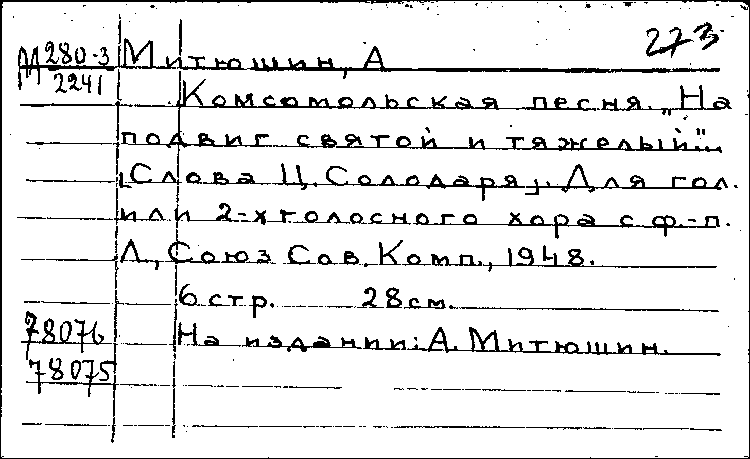 273
М 280-3 Митюшин, А
2241
Комсомольская песня. „На
подвиг святой и тяжелый"...
[Слова Ц. Солодаря]. Для гол.
или 2-хголосного хора с ф.-п.
Л., Союз Сов. Комп., 1948.
6 стр. 28 см.
78076 На издании: А. Митюшин.
78075